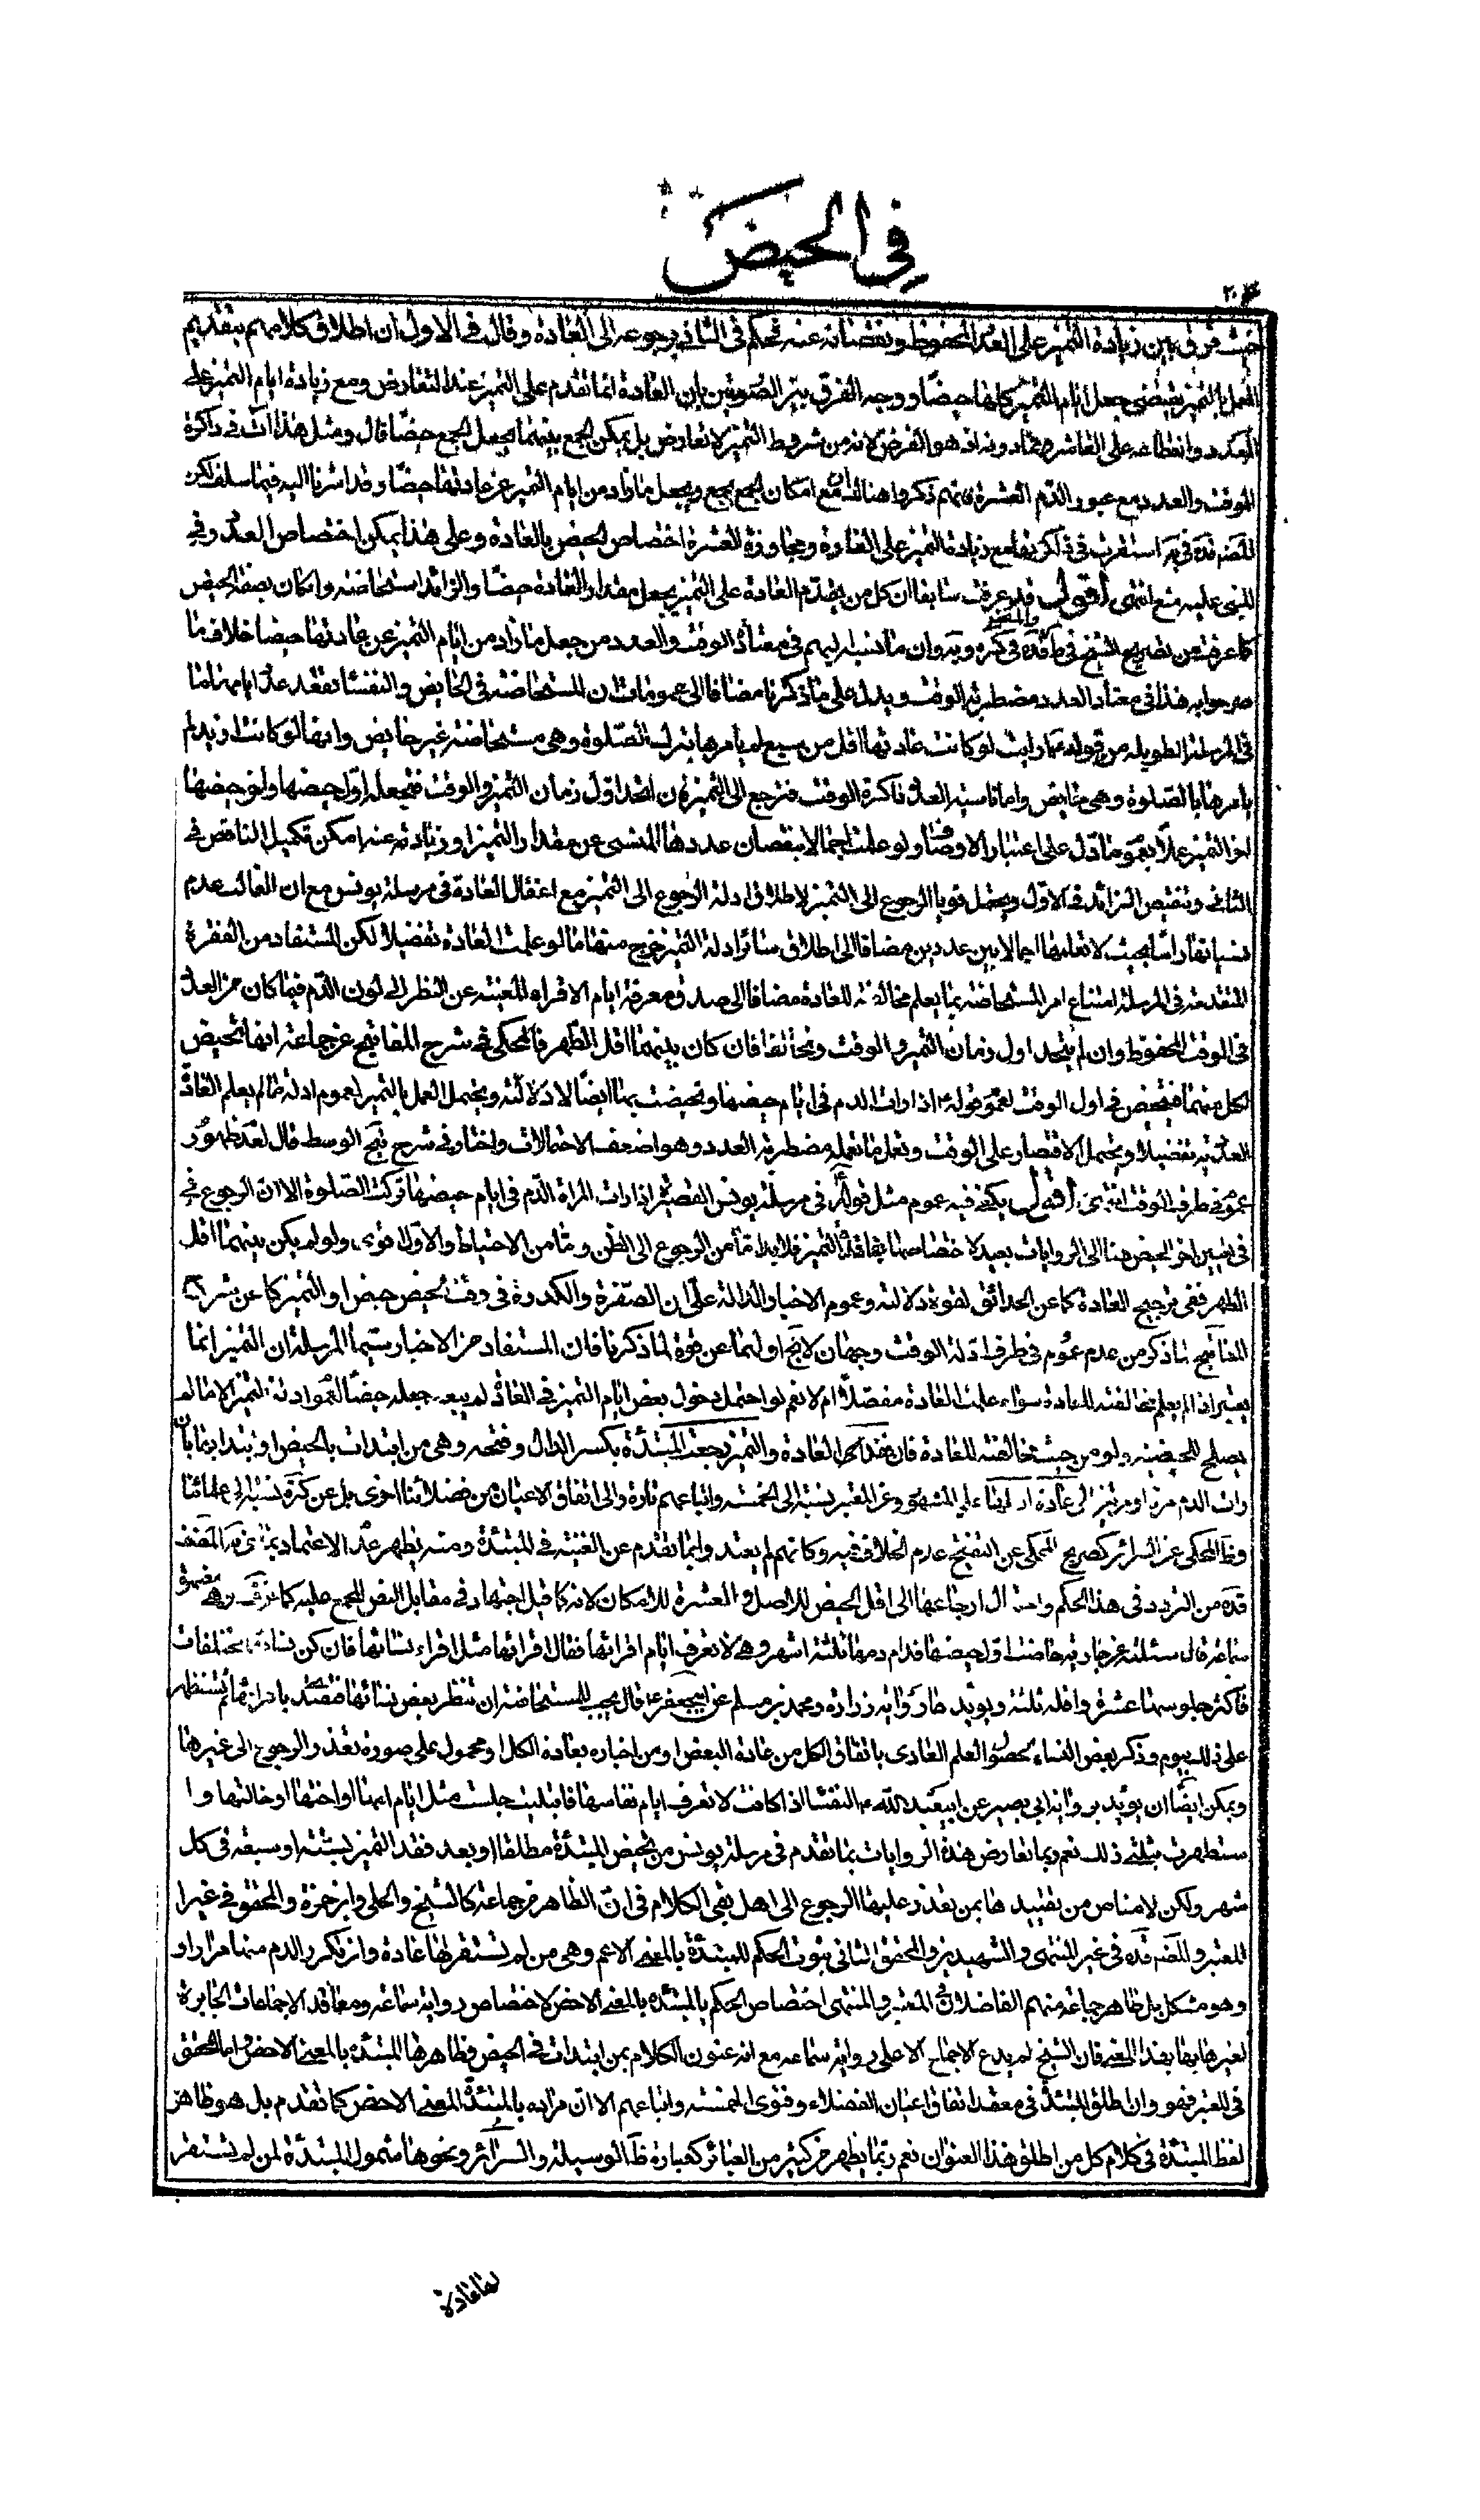 في الحيض
٢٠٤
حيث فرق بين زيادة التميز على العدد المحفوظ ونقصانه عنه فحكم في الثاني برجوعه الى العادة وقال في الاول ان اطلاق كلامهم بتقديم
العمل بالتميز يقتضى جعل ايام التميز كلها حيضا ووجه الفرق بين الصورتين بان العادة انما تقدم على التميز عند التعارض ومع زيادة ايام التميز على
العدد وانقطاعه على العاشر فما دونه اذ هو الفرض لانه من شروط التميز لا تعارض بل يمكن الجمع بينهما بجعل الجمع حيضا قال ومثل هذا آت في ذاكرة
الوقت والعدد مع عبور الدم العشرة فانهم ذكروا هنالك ان مع امكان الجمع يجمع ويجعل ما زاد من ايام التميز عن عادتها حيضا وقد اشرنا اليه فيما سلف لكن
المصنف قده في يه استقرب في ذاكرتهما مع زيادة التميز على العادة ومجاوزة العشرة اختصاص الحيض بالعادة وعلى هذا يمكن اختصاص العدد في
المبني عليه منع انتهى اقول قد عرفت سابقا ان كل من يقدم العادة على التميز يجعل مقدار العادة حيضا والزائد استحاضة وان كان بصفة الحيض
كما عرفت من تصريح الشيخ في ط والمصنف قده في كره ويه وان ما نسبه اليهم في معتادة الوقت والعدد من جعل ما زاد من ايام التميز عن عادتها حيضا خلاف ما
صرحوا به هذا في معتادة العدد مضطربة الوقت ويدل على ما ذكرنا مضافا الى عمومات ان المستحاضة في الحائض والنفساء تقعد عدد ايامها ما
في المرسلة الطويلة من قوله ع ارايت لو كانت عادتها اقل من سبع لم يامرها بترك الصلوة وهي مستحاضة غير حائض وانها لو كانت ازيد لم
يامرها بالصلوة وهي حائض واما ناسية العدد ذاكرة الوقت فترجع الى التميز فان اتحد اول زمان التميز والوقت فتجعله اول حيضها واخر حيضها
اخر التميز عملا بعموم ما دل على اعتبار الاوصاف ولو علمت اجمالا بنقصان عددها المنسى عن مقدار التميز او زيادته عنه امكن تكميل الناقص في
الثاني وتنقيص الزائد في الاول ويحتمل قويا الرجوع الى التميز لاطلاق ادلة الرجوع الى التميز مع اغفال العادة في مرسلة يونس مع ان الغالب عدم
نسيانها راسا بحيث لا تعلمها اجمالا بين عددين مضافا الى اطلاق سائر ادلة التميز خرج منها ما لو علمت العادة تفصيلا لكن المستفاد من الفقرة
المتقدمة في المرسلة امتناع امر المستحاضة بما يعلم مخالفته للعادة مضافا الى صدق معرفة ايام الاقراء المغنية عن النظر الى لون الدم فيما كان من العدد
في الوقت المحفوظ وان لم يتحد اول زمان التميز والوقت وتخالفا فان كان بينهما اقل الطهر فالمحكي في شرح المفاتيح عن جماعة انها تحيض
لكل منهما فتتحيض في اول الوقت لعموم قوله ع اذا رات الدم في ايام حيضها وتحيضت بهما ايضا لادلته ويحتمل العمل بالتميز لعموم ادلته ما لم يعلم العادة
العددية تفصيلا ويحتمل الاقتصار على الوقت وتعمل ما تعمله مضطربة العدد وهو اضعف الاحتمالات واختار في شرح نج الوسط قال لعدم ظهور
عموم في طرف الوقت انتهى اقول يكفي فيه عموم مثل قوله ع في مرسلة يونس القصيرة اذا رات المراة الدم في ايام حيضها تركت الصلوة الا ان الرجوع في
في تعيين اخر الحيض هنا الى الروايات بعيد لاختصاصها بفاقدة التميز فلا بد اما من الرجوع الى الظن واما من الاحتياط والاول قوى ولو لم يكن بينهما اقل
الطهر ففي ترجيح العادة كما عن الحدائق لقوة دلالته وعموم الاخبار الدالة على ان الصفرة والكدرة في وقت الحيض حيض او التميز كما عن شرح
المفاتيح لما ذكر من عدم عموم في طرف ادلة الوقت وجهان لا يخ اولهما عن قوة لما ذكرنا فان المستفاد من الاخبار سيما المرسلة ان التميز انما
يعتبر اذا لم يعلم مخالفته للعادة سواء علمت العادة مفصلا ام لا نعم لو احتمل دخول بعض ايام التميز في العادة لم يبعد جعله حيضا لعموم ادلة التميز الا ما لم
يصلح للحيضية ولو من حيث مخالفته للعادة فان فقدتا العادة والتميز رجعت المبتدئة بكسر الدال وفتحه وهي من ابتدات بالحيض او ابتدا بها بان
رات الدم مرة او مرتين الى عادة اهلها على المشهور وعن المعتبر نسبته الى الخمسة واتباعهم تارة والى اتفاق الاعيان من فضلائنا اخرى بل عن كره نسبته الى علمائنا
وظ المحكي عن السرائر كصريح المحكي عن التنقيح عدم الخلاف فيه وكانهم لم يعتدوا بما تقدم عن الغنية في المبتدئة ومنه يظهر عدم الاعتماد بما في يه المصنف
قده من التردد في هذا الحكم واحتمال ارجاعها الى اقل الحيض للاصل والعشرة للامكان لانه كما قيل اجتهاد في مقابل النص المجمع عليه كما عرفت وهي مضمرة
سماعة قال سئلته عن جارية حاضت اول حيضها فدام دمها ثلثة اشهر وهي لا تعرف ايام اقرائها فقال اقرائها مثل اقراء نسائها فان كن نسائها مختلفات
فاكثر جلوسها عشرة واقله ثلثة ويؤيده ما رواية زرارة ومحمد بن مسلم عن ابيجعفر ع قال يجب للمستحاضة ان تنظر بعض نسائها فتقتدى باقرائها ثم تستظهر
على ذلك بيوم وذكر بعض النساء لحصول العلم العادى باتفاق الكل من عادة البعض او من اخباره بعادة الكل او محمول على صورة تعذر الرجوع الى غيرها
ويمكن ايضا ان يؤيد برواية ابي بصير عن ابيعبد الله ع النفساء اذا كانت لا تعرف ايام نفاسها فابتليت جلست مثل ايام امها او اختها او خالتها وا
ستظهرت بثلثي ذلك نعم ربما تعارض هذه الروايات بما تقدم في مرسلة يونس من تحيض المبتدئة مطلقا او بعد فقد التميز بستة او سبعة في كل
شهر ولكن لا مناص من تقييدها بمن تعذر عليها الرجوع الى اهل بقي الكلام في ان الظاهر من جماعة كالشيخ والحلي وابن حمزة والمحقق في غير ا
لمعتبر والمصنف قده في غير المنتهى والشهيدين والمحقق الثاني ثبوت الحكم للمبتدئة بالمعنى الاعم وهي من لم تستقر لها عادة وان تكرر الدم منها مرارا و
وهو مشكل بل ظاهر جماعة منهم الفاضلان في المعتبر والمنتهى اختصاص الحكم بالمبتدئة بالمعنى الاخص لاختصاص رواية سماعة ومعاقد الاجماعات الجابرة
لغيرها بها بهذا المعنى فان الشيخ لم يدع الاجماع الا على رواية سماعة مع انه عنون الكلام بمن ابتدات في الحيض وظاهرها المبتدئة بالمعنى الاخص واما المحقق
في المعتبر فهو وان اطلق المبتدئة في معقد اتفاق اعيان الفضلاء وفتوى الخمسة واتباعهم الا ان مراده بالمبتدئة المعنى الاخص كما تقدم بل هو ظاهر
لفظ المبتدئة في كلام كل من اطلق هذا العنوان نعم ربما يظهر من كثير من العبائر كعبارة ط والوسيلة والسرائر ونحوها شمول المبتدئة لمن لم تستقر
لها عادة